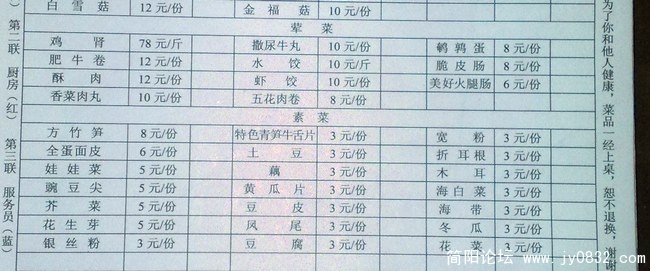 白雪菇 12元/份 金福菇 10元/份
荤菜
鸡肾 78元/斤 撒尿牛丸 10元/份 鹌鹑蛋 8元/份
肥牛卷 12元/份 水饺 10元/斤 脆皮肠 8元/份
酥肉 12元/份 虾饺 10元/份 美好火腿肠 6元/份
香菜肉丸 10元/份 五花肉卷 8元/份
素菜
方竹笋 8元/份 特色青笋牛舌片 3元/份 宽粉 3元/份
全蛋面皮 6元/份 土豆 3元/份 折耳根 3元/份
娃娃菜 5元/份 藕 3元/份 木耳 3元/份
豌豆尖 5元/份 黄瓜片 3元/份 海白菜 3元/份
芥菜 5元/份 豆皮 3元/份 海带 3元/份
花生芽 5元/份 凤尾 3元/份 冬瓜 3元/份
银丝粉 3元/份 豆腐 3元/份 花菜 3元/份
）第二联 厨房（红） 第三联 服务员（蓝）
为了你和他人健康，菜品一经上桌，恕不退换，谢谢
简阳论坛 www.jy0832.com